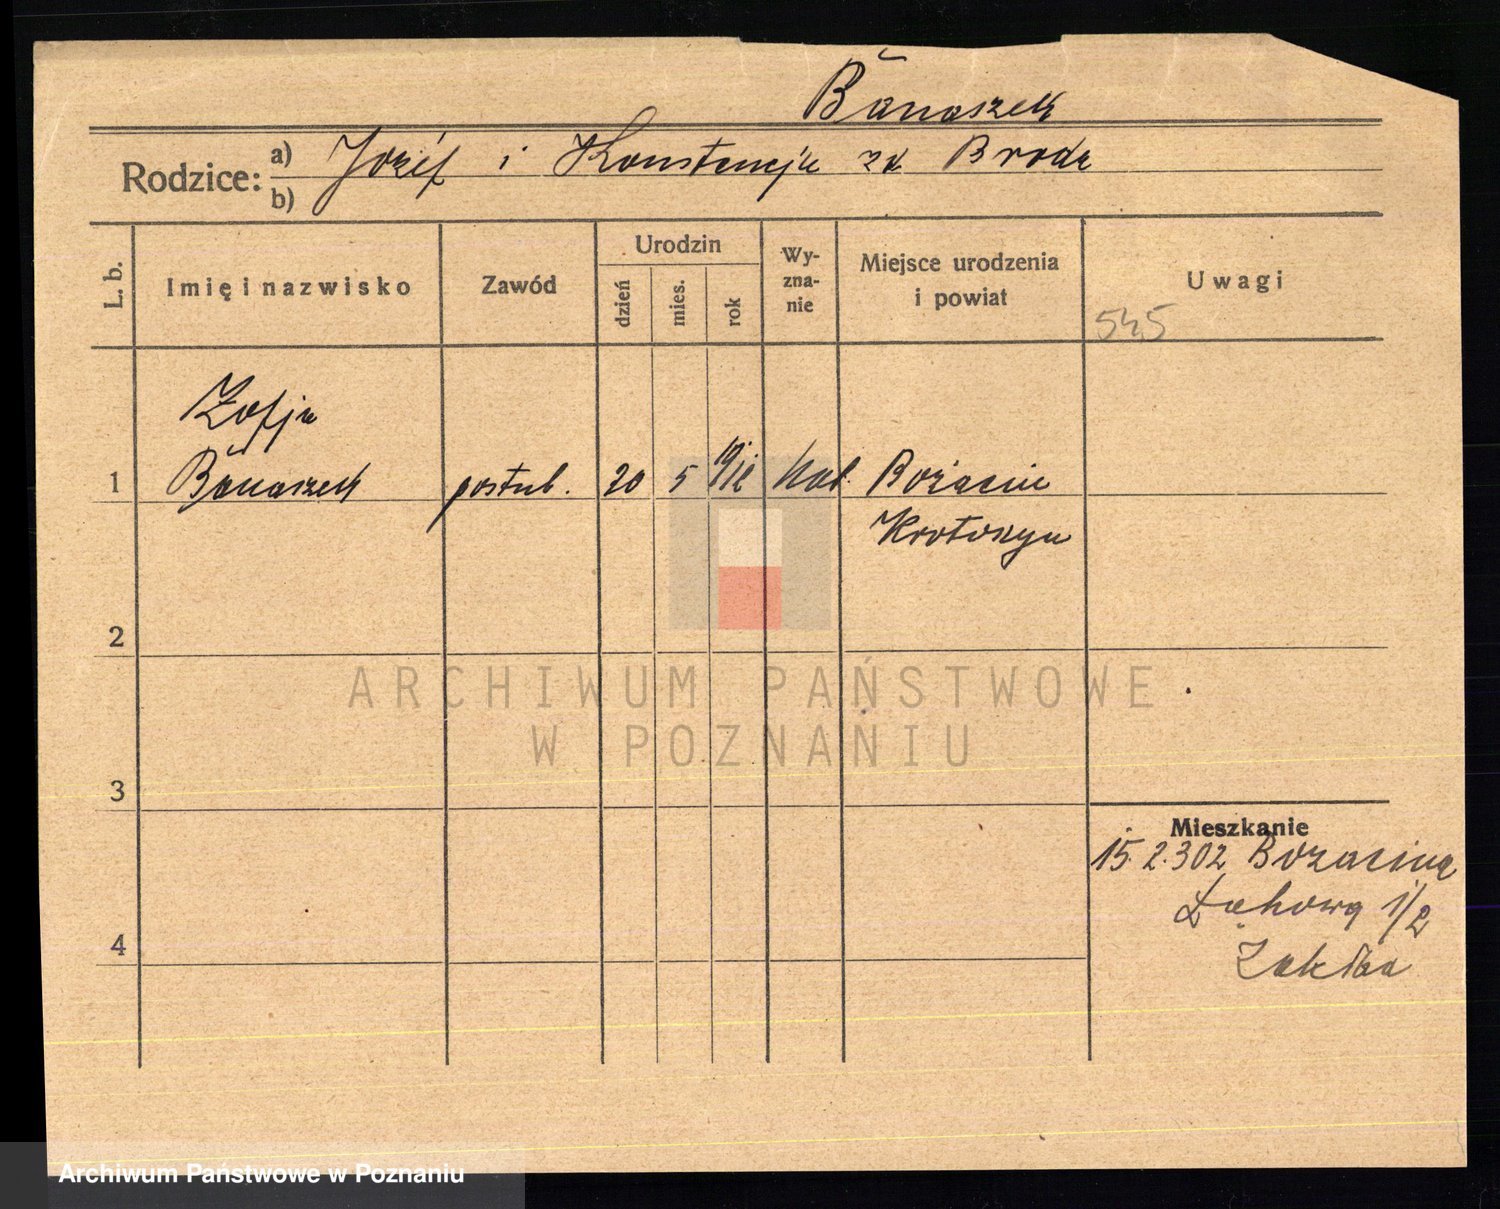 Banaszek
Rodzice: a) Józef i Konstancja zd Broda
b)
L. b.
Imię i nazwisko
Zawód
Urodzin
dzień
mies.
rok
Wy-
zna-
nie
Miejsce urodzenia
i powiat
Uwagi
545
Zofja
1 Banaszek postul. 20 5 kat. Bożacin
Krotoszyn
2
3
4
Mieszkanie
15.2.302 Bozacina
Łąkowa 1/2
ARCHIWUM PAŃSTWOWE
W POZNANIU
Archiwum Państwowe w Poznaniu